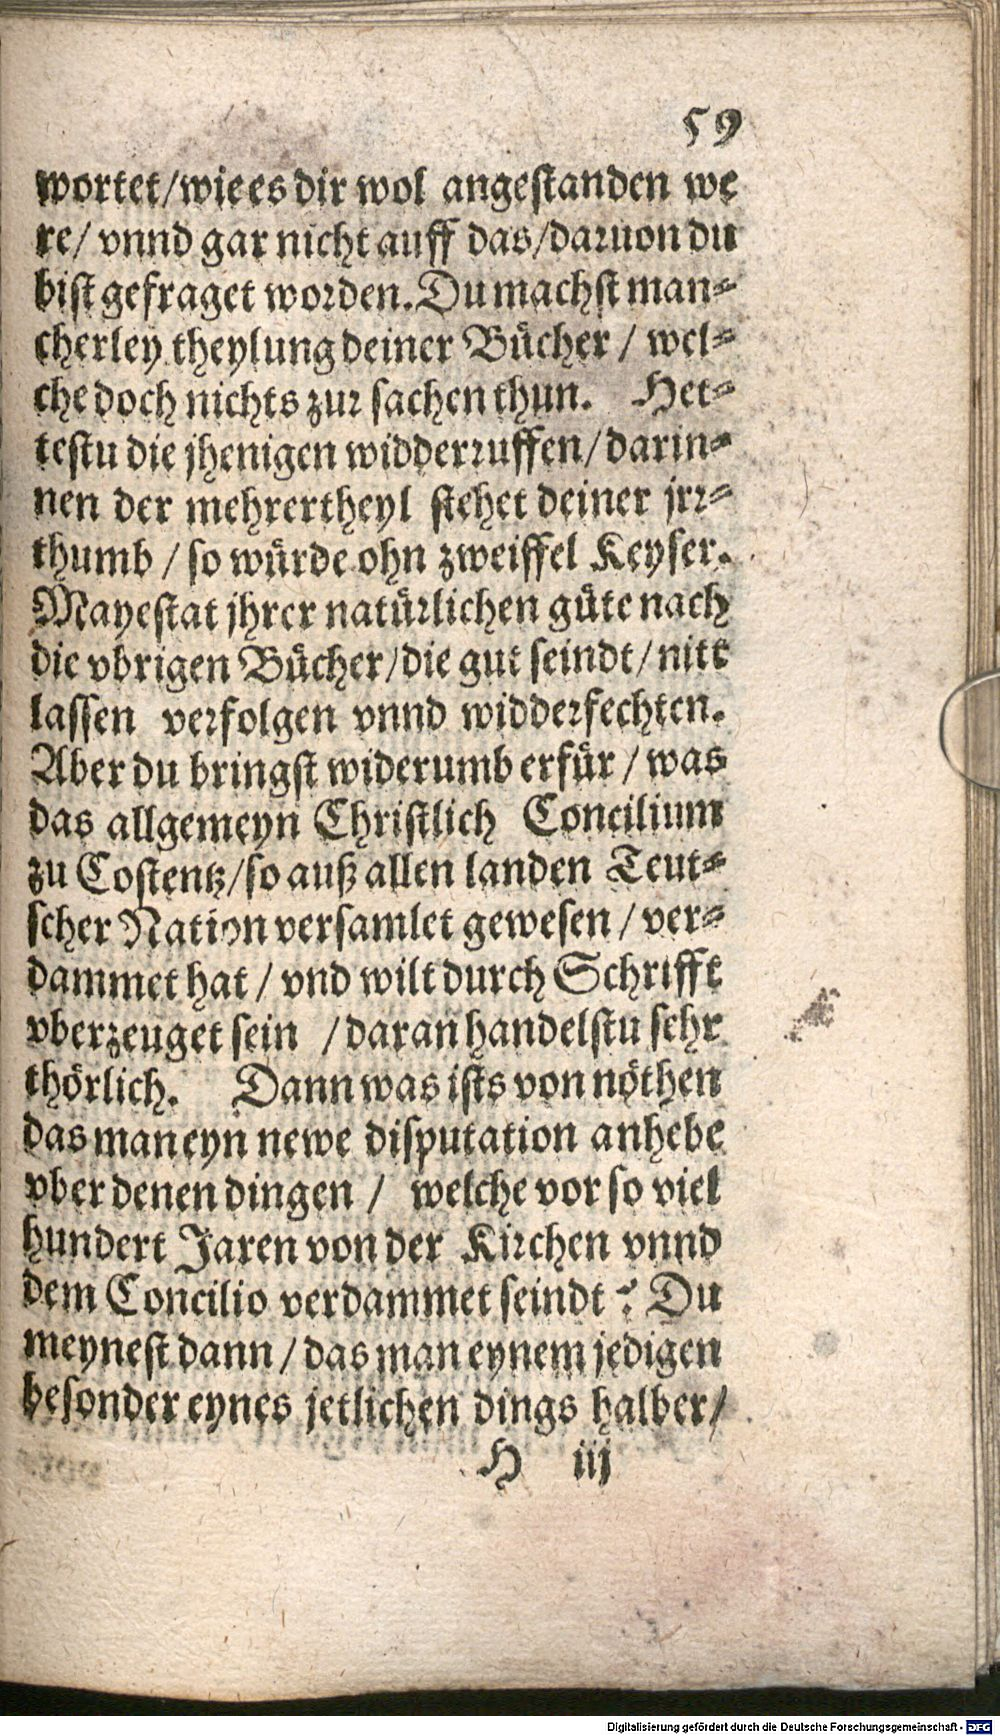 59
wortet/wie es dir wol angestanden we
re/ vnnd gar nicht auff das/daruon du
bist gefraget worden. Du machst man⸗
cherley theylung deiner Bücher / wel⸗
che doch nichts zur sachen thun. Het⸗
testu die jhenigen widderruffen/ darin⸗
nen der mehrertheyl stehet deiner jrr⸗
thumb / so würde ohn zweiffel Keyser.
Mayestat jhrer natürlichen güte nach
die vbrigen Bücher/die gut seindt/ nitt
lassen verfolgen vnnd widderfechten.
Aber du bringst widerumb erfür / was
das allgemeyn Christlich Concilium
zu Costentz/so auß allen landen Teut⸗
scher Nation versamlet gewesen / ver⸗
dammet hat / vnd wilt durch Schrifft
vberzeuget sein / daran handelstu sehr
thörlich. Dann was ists von nöthen
das man eyn newe disputation anhebe
vber denen dingen / welche vor so viel
hundert Jaren von der Kirchen vnnd
dem Concilio verdammet seindt ? Du
meynest dann / das man eynem jedigen
besonder eynes jetlichen dings halber/
H iij
Digitalisierung gefördert durch die Deutsche Forschungsgemeinschaft - DFG